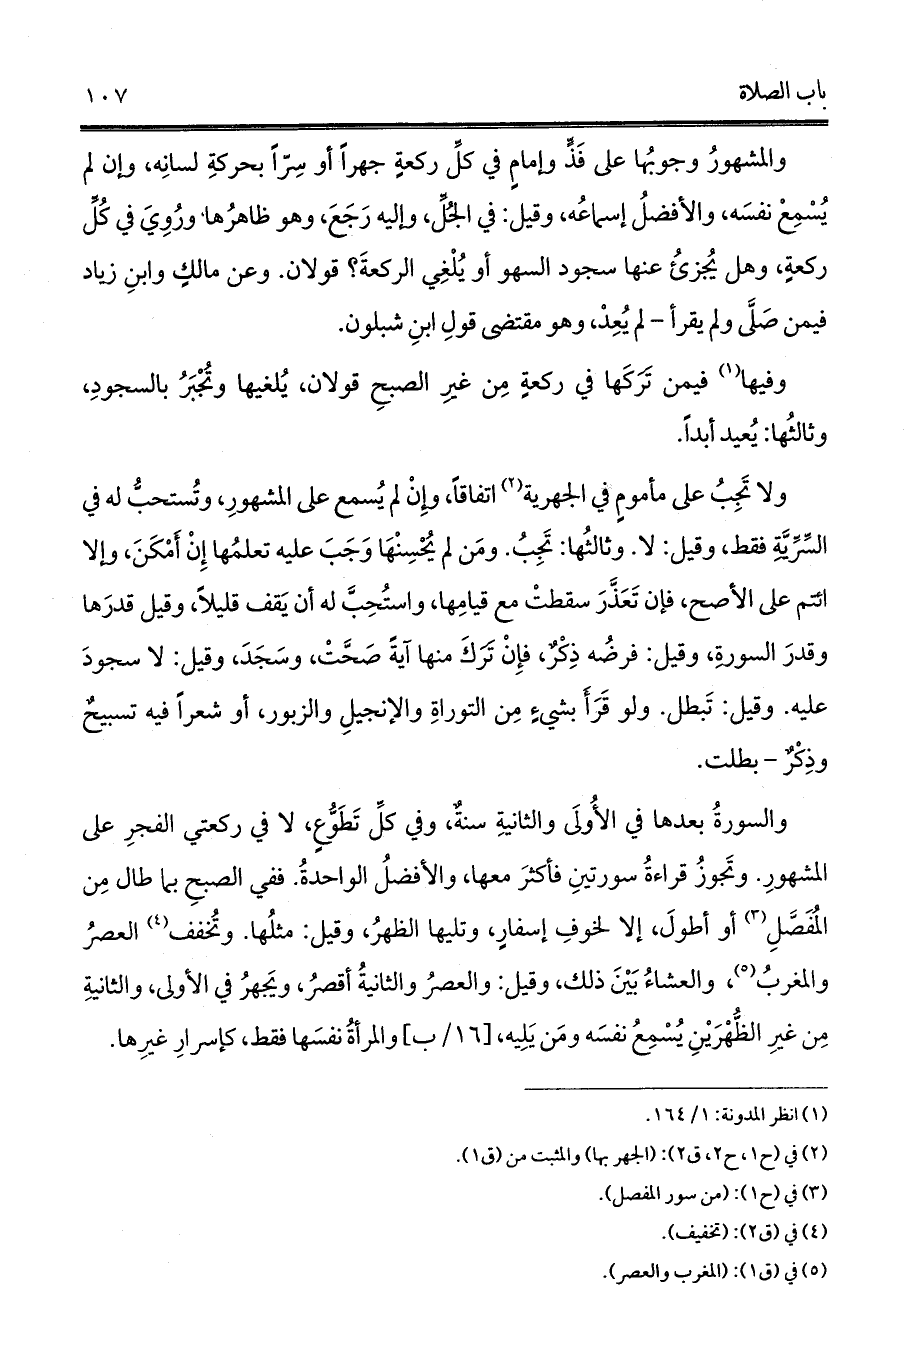 باب الصلاة
١٠٧
والمشهورُ وجوبُها على فَذٍّ وإمامٍ في كلِّ ركعةٍ جهراً أو سِرّاً بحركةِ لسانِه، وإن لم
يُسْمِعْ نفسَه، والأفضلُ إسماعُه، وقيل: في الجُلِّ، وإليه رَجَعَ، وهو ظاهرُها. ورُوِيَ في كُلِّ
ركعةٍ، وهل يُجزئُ عنها سجود السهو أو يُلْغِي الركعةَ؟ قولان. وعن مالكٍ وابنِ زياد
فيمن صَلَّى ولم يقرأ – لم يُعِدْ، وهو مقتضى قولِ ابنِ شبلون.
وفيها(١) فيمن تَرَكَها في ركعةٍ مِن غيرِ الصبحِ قولان، يُلغيها وتُجْبَرُ بالسجودِ،
وثالثُها: يُعيد أبداً.
ولا تَجِبُ على مأمومٍ في الجهرية(٢) اتفاقاً، وإنْ لم يُسمع على المشهورِ، وتُستحبُّ له في
السِّرِّيَّةِ فقط، وقيل: لا. وثالثُها: تَجِبُ. ومَن لم يُحْسِنْهَا وَجَبَ عليه تعلمُها إنْ أَمْكَنَ، وإلا
ائتم على الأصح، فإن تَعَذَّرَ سقطتْ مع قيامِها، واستُحِبَّ له أن يَقف قليلاً، وقيل قدرَها
وقدرَ السورةِ، وقيل: فرضُه ذِكْرٌ، فإنْ تَرَكَ منها آيةً صَحَّتْ، وسَجَدَ، وقيل: لا سجودَ
عليه. وقيل: تَبطل. ولو قَرَأَ بشيءٍ مِن التوراةِ والإنجيلِ والزبور، أو شعراً فيه تسبيحٌ
وذِكْرٌ – بطلت.
والسورةُ بعدها في الأُولَى والثانيةِ سنةٌ، وفي كلِّ تَطَوُّعٍ، لا في ركعتي الفجرِ على
المشهورِ. وتَجوزُ قراءةُ سورتينِ فأكثرَ معها، والأفضلُ الواحدةُ. ففي الصبحِ بما طال مِن
المُفَصَّلِ(٣) أو أطولَ، إلا لخوفِ إسفارٍ، وتليها الظهرُ، وقيل: مثلُها. وتُخفف(٤) العصرُ
والمغربُ(٥)، والعشاءُ بَيْنَ ذلك، وقيل: والعصرُ والثانيةُ أقصرُ، ويَجهرُ في الأولى، والثانيةِ
مِن غيرِ الظُّهْرَيْنِ يُسْمِعُ نفسَه ومَن يَلِيه، [١٦/ ب] والمرأةُ نفسَها فقط، كإسرارِ غيرِها.
(١) انظر المدونة: ١/ ١٦٤.
(٢) في (ح١، ح٢، ق٢): (الجهر بها) والمثبت من (ق١).
(٣) في (ح١): (من سور المفصل).
(٤) في (ق٢): (تخفيف).
(٥) في (ق١): (المغرب والعصر).